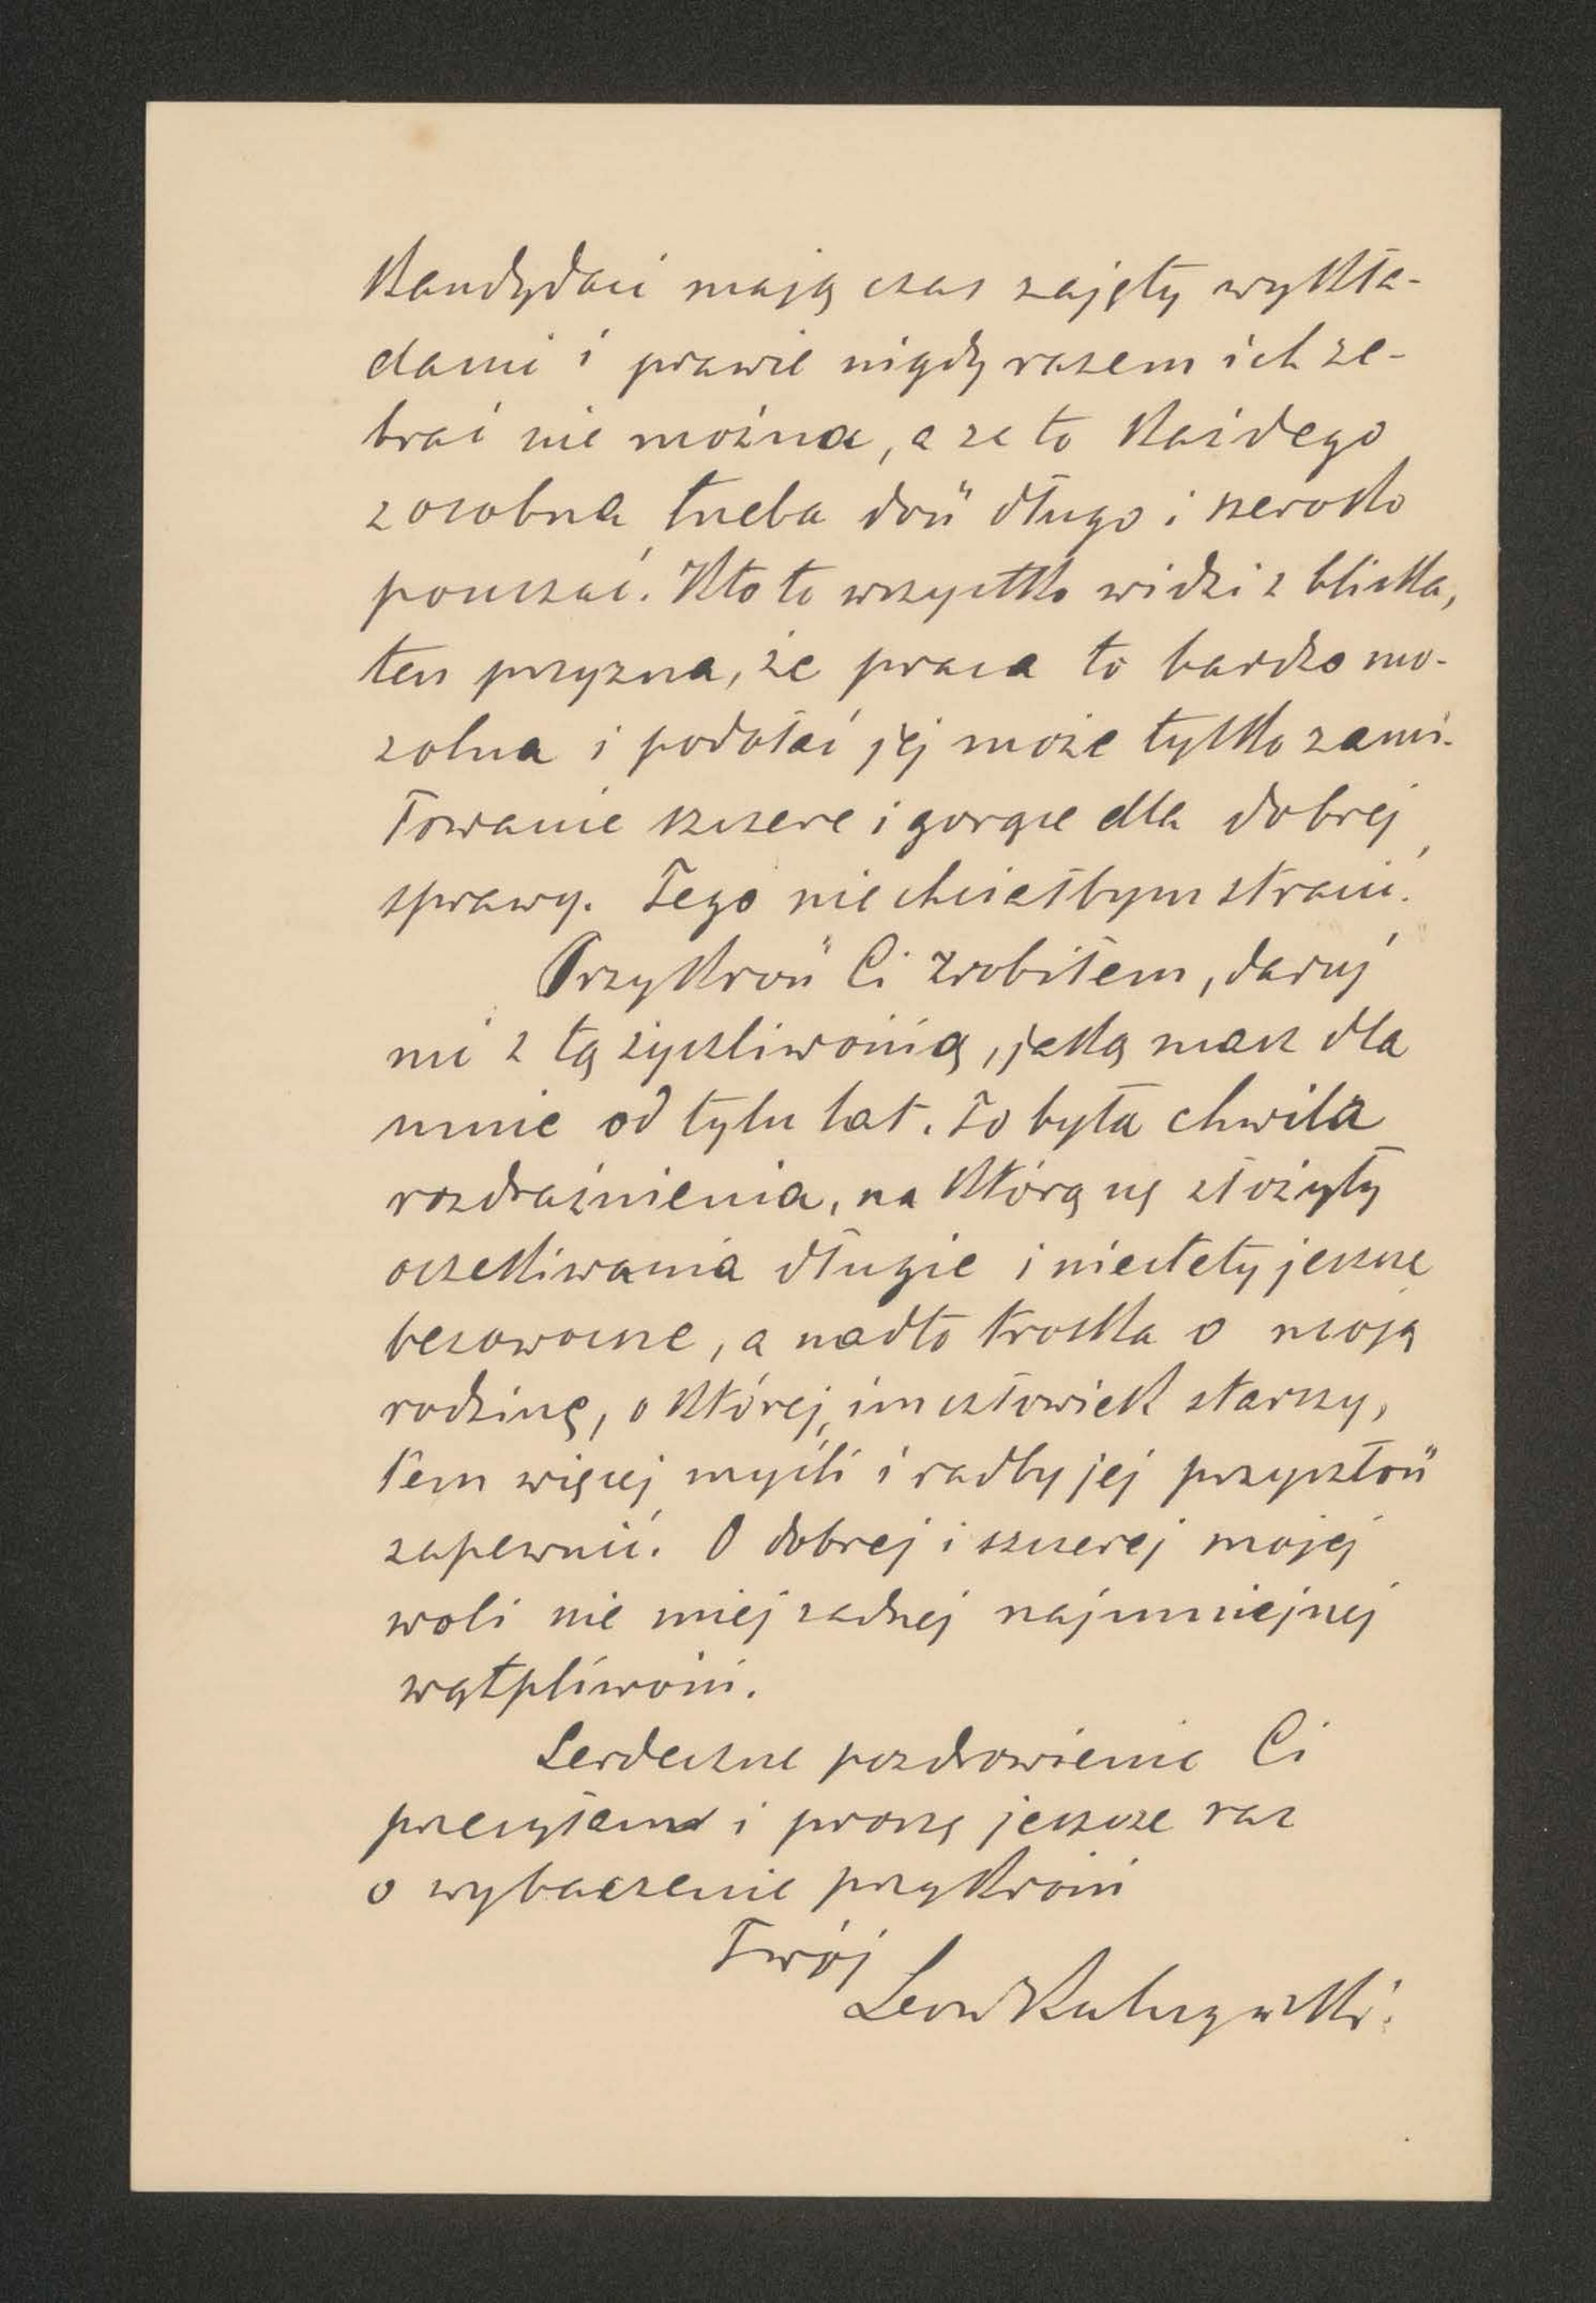 Kandydaci mają czas zajęty wykła-
dami i prawie nigdy razem ich ze-
brać nie można, a za to każdego
z osobna trzeba dość długo i szeroko
pouczać. Kto to wszystko widzi z bliska,
ten przyzna, że praca to bardzo mo-
zolna i podołać jej może tylko zami-
łowanie szczere i gorące dla dobrej
sprawy. Tego nie chciałbym stracić.
Przykrość Ci zrobiłem, daruj
mi z tą życzliwością, jaką masz dla
mnie od tylu lat. To była chwila
rozdrażnienia, na którą się złożyły
oczekiwania długie i niestety jeszcze
bezowocne, a nadto troska o moją
rodzinę, o której, im człowiek starszy,
tem więcej myśli i radby jej przyszłość
zapewnić. O dobrej i szczerej mojej
woli nie miej żadnej najmniejszej
wątpliwości.
Serdeczne pozdrowienie Ci
przesyłam i proszę jeszcze raz
o wybaczenie przykrości
Twój
Leon Kulczyński.